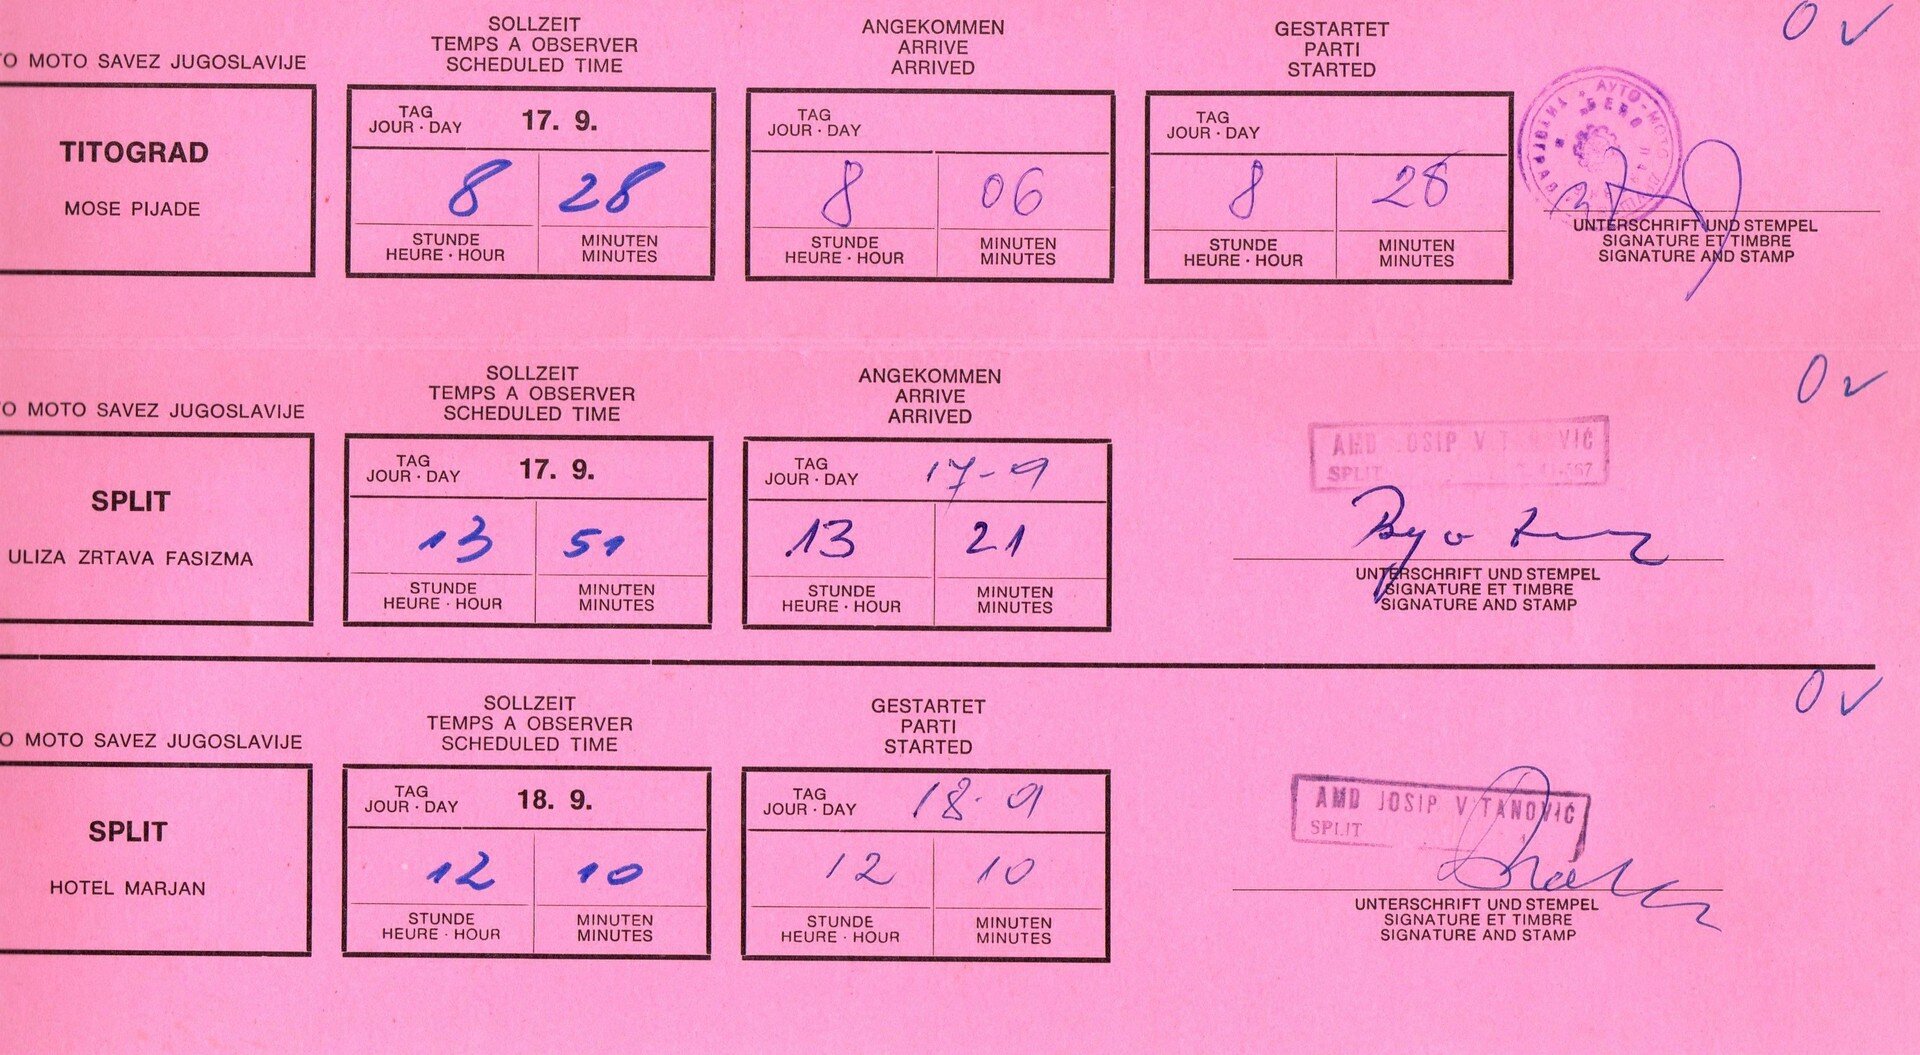 SOLLZEIT
TEMPS A OBSERVER
SCHEDULED TIME
ANGEKOMMEN
ARRIVE
ARRIVED
GESTARTET
PARTI
STARTED
0 ✓
O MOTO SAVEZ JUGOSLAVIJE
TITOGRAD
MOSE PIJADE
TAG
JOUR · DAY
17. 9.
8 28
STUNDE
HEURE · HOUR
MINUTEN
MINUTES
TAG
JOUR · DAY
8 06
STUNDE
HEURE · HOUR
MINUTEN
MINUTES
TAG
JOUR · DAY
8 28
STUNDE
HEURE · HOUR
MINUTEN
MINUTES
АУТО-МОТО
UNTERSCHRIFT UND STEMPEL
SIGNATURE ET TIMBRE
SIGNATURE AND STAMP
SOLLZEIT
TEMPS A OBSERVER
SCHEDULED TIME
ANGEKOMMEN
ARRIVE
ARRIVED
0 ✓
O MOTO SAVEZ JUGOSLAVIJE
SPLIT
ULIZA ZRTAVA FASIZMA
TAG
JOUR · DAY
17. 9.
13 51
STUNDE
HEURE · HOUR
MINUTEN
MINUTES
TAG
JOUR · DAY
17-9
13 21
STUNDE
HEURE · HOUR
MINUTEN
MINUTES
AMD JOSIP VITANOVIĆ
SPLIT
UNTERSCHRIFT UND STEMPEL
SIGNATURE ET TIMBRE
SIGNATURE AND STAMP
SOLLZEIT
TEMPS A OBSERVER
SCHEDULED TIME
GESTARTET
PARTI
STARTED
0 ✓
O MOTO SAVEZ JUGOSLAVIJE
SPLIT
HOTEL MARJAN
TAG
JOUR · DAY
18. 9.
12 10
STUNDE
HEURE · HOUR
MINUTEN
MINUTES
TAG
JOUR · DAY
18-9
12 10
STUNDE
HEURE · HOUR
MINUTEN
MINUTES
AMD JOSIP VITANOVIĆ
SPLIT
UNTERSCHRIFT UND STEMPEL
SIGNATURE ET TIMBRE
SIGNATURE AND STAMP